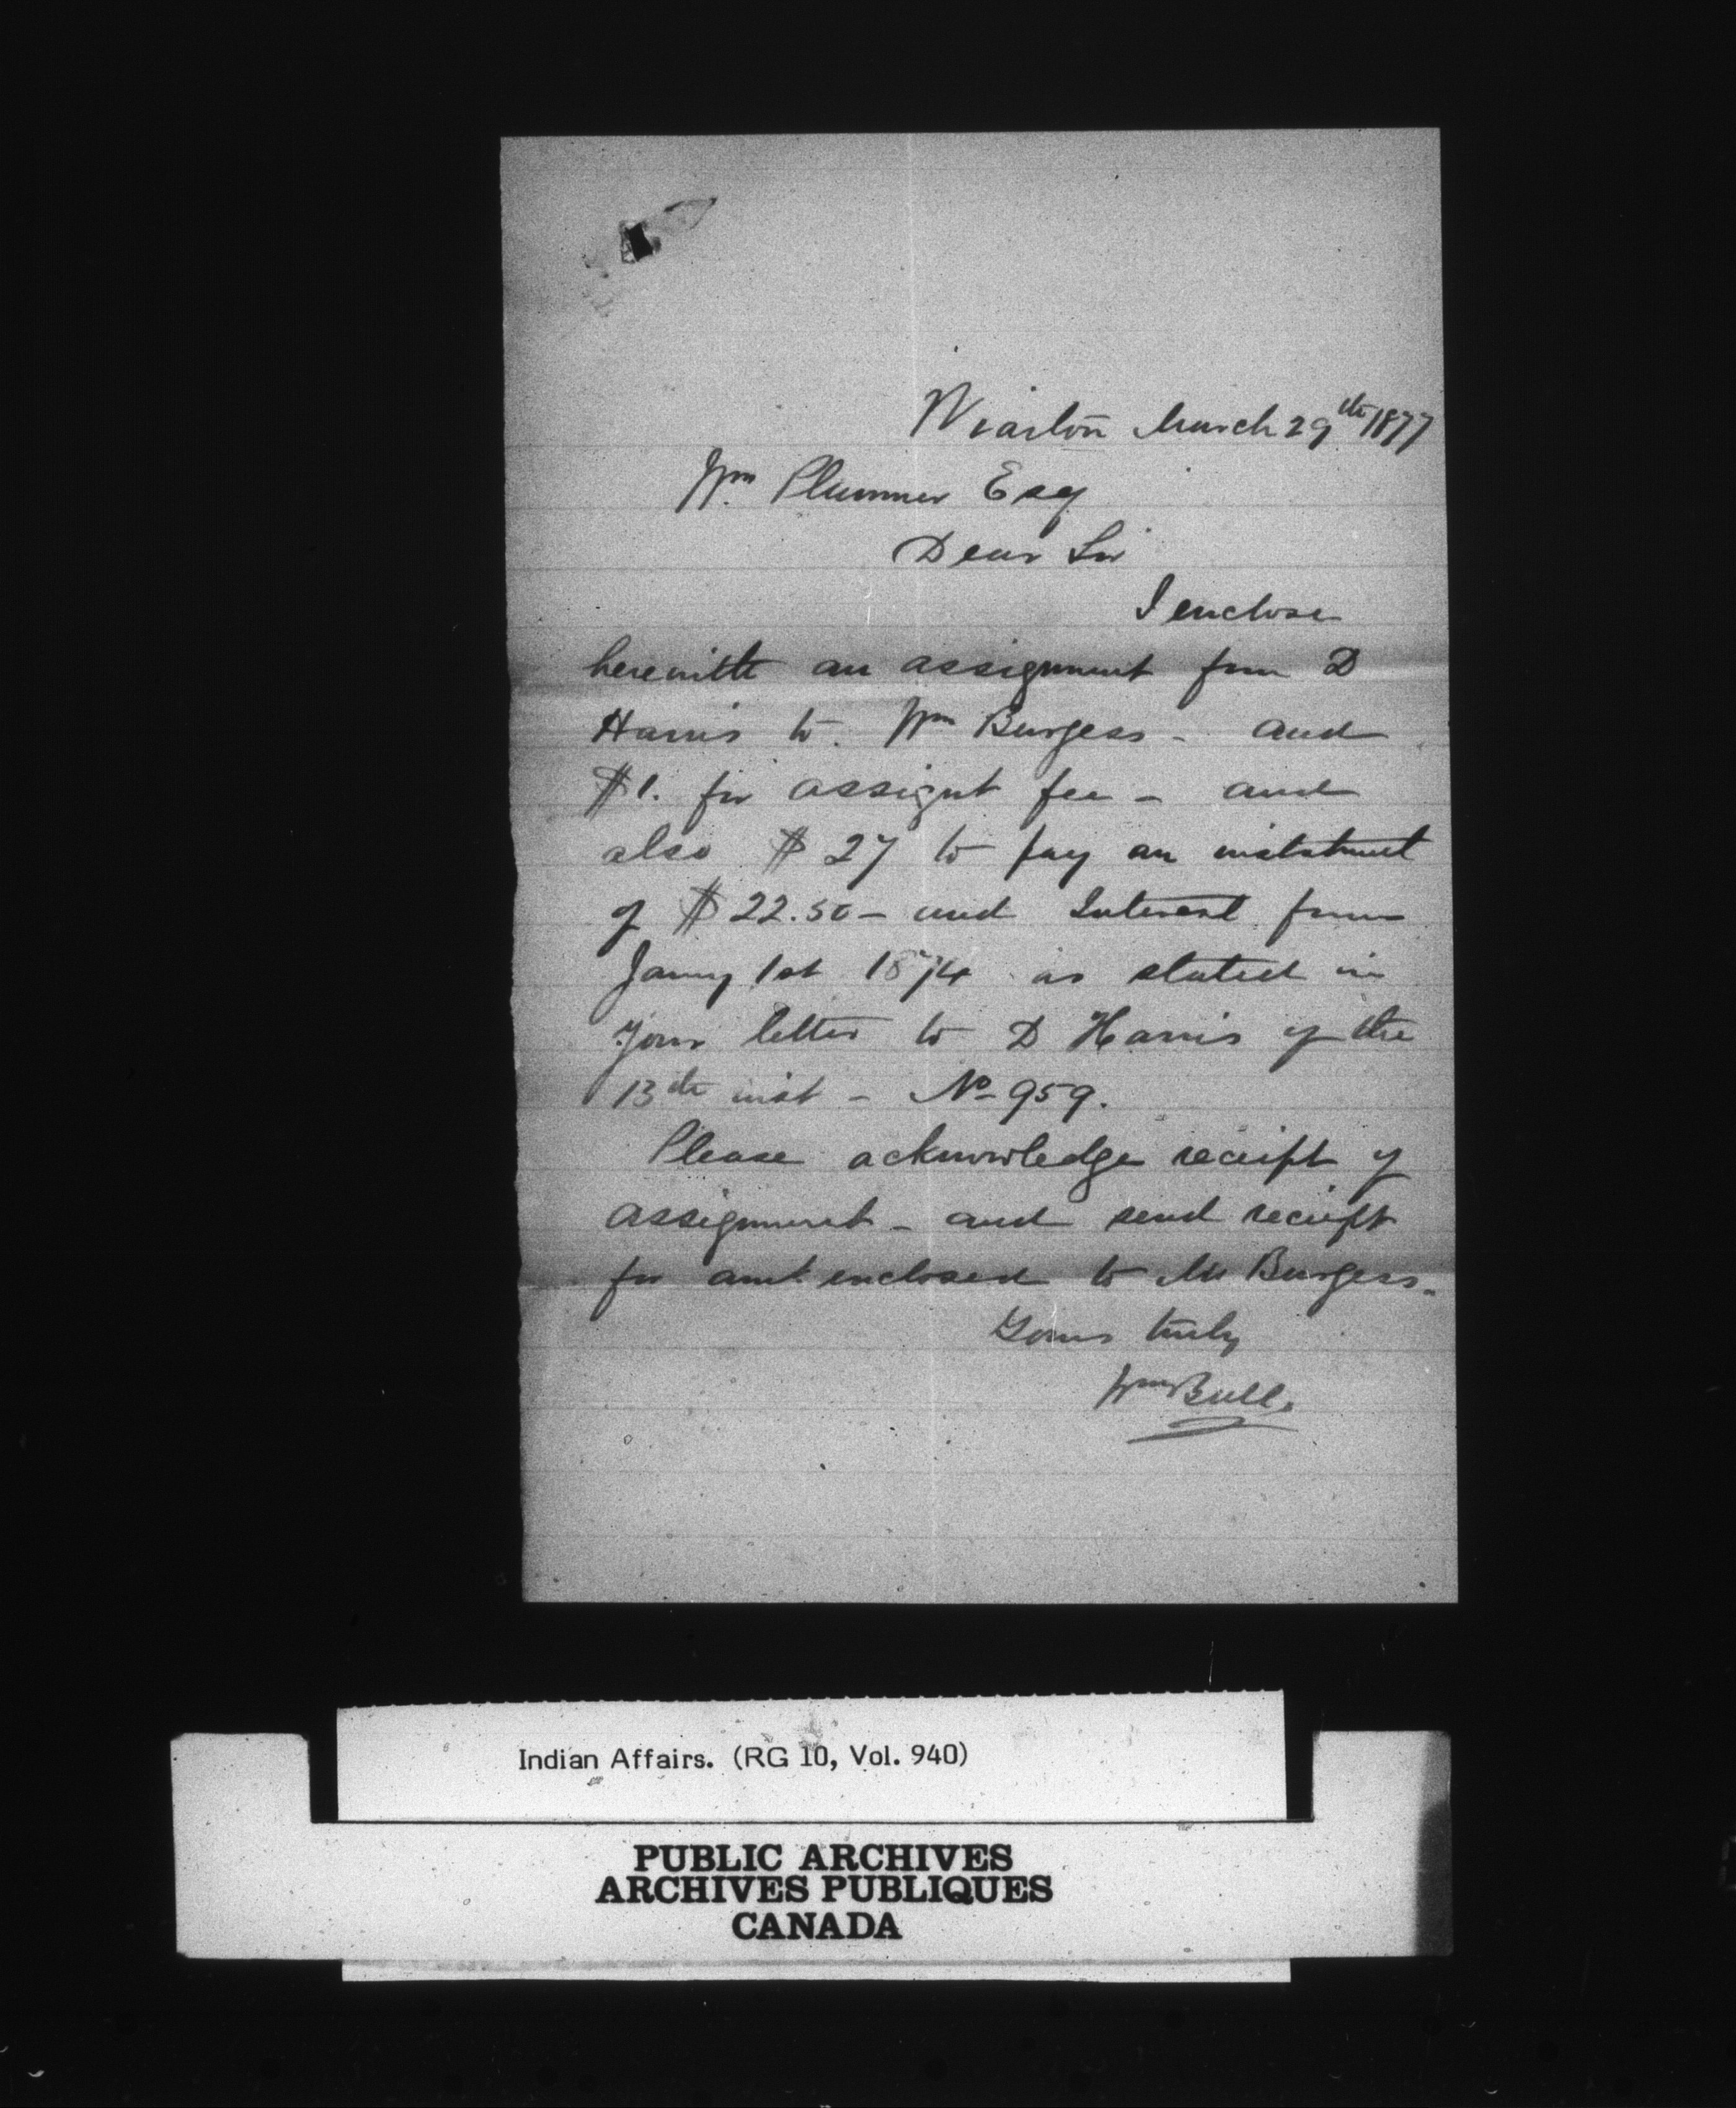 Wiarton March 29th 1877
Wm Plummer Esq
Dear Sir
I enclose
herewith an assignment from D
Harris to Wm Burgess - and
$1. for assignt fee - and
also $27 to pay an instalment
of $22.50 - and Interest from
Jany 1st 1874 as stated in
your letter to D Harris of the
13th inst - No 959.
Please acknowledge receipt of
assignment - and send receipt
for amt enclosed to Mr Burgess.
Yours truly
Wm Bull.
Indian Affairs. (RG 10, Vol. 940)
PUBLIC ARCHIVES
ARCHIVES PUBLIQUES
CANADA